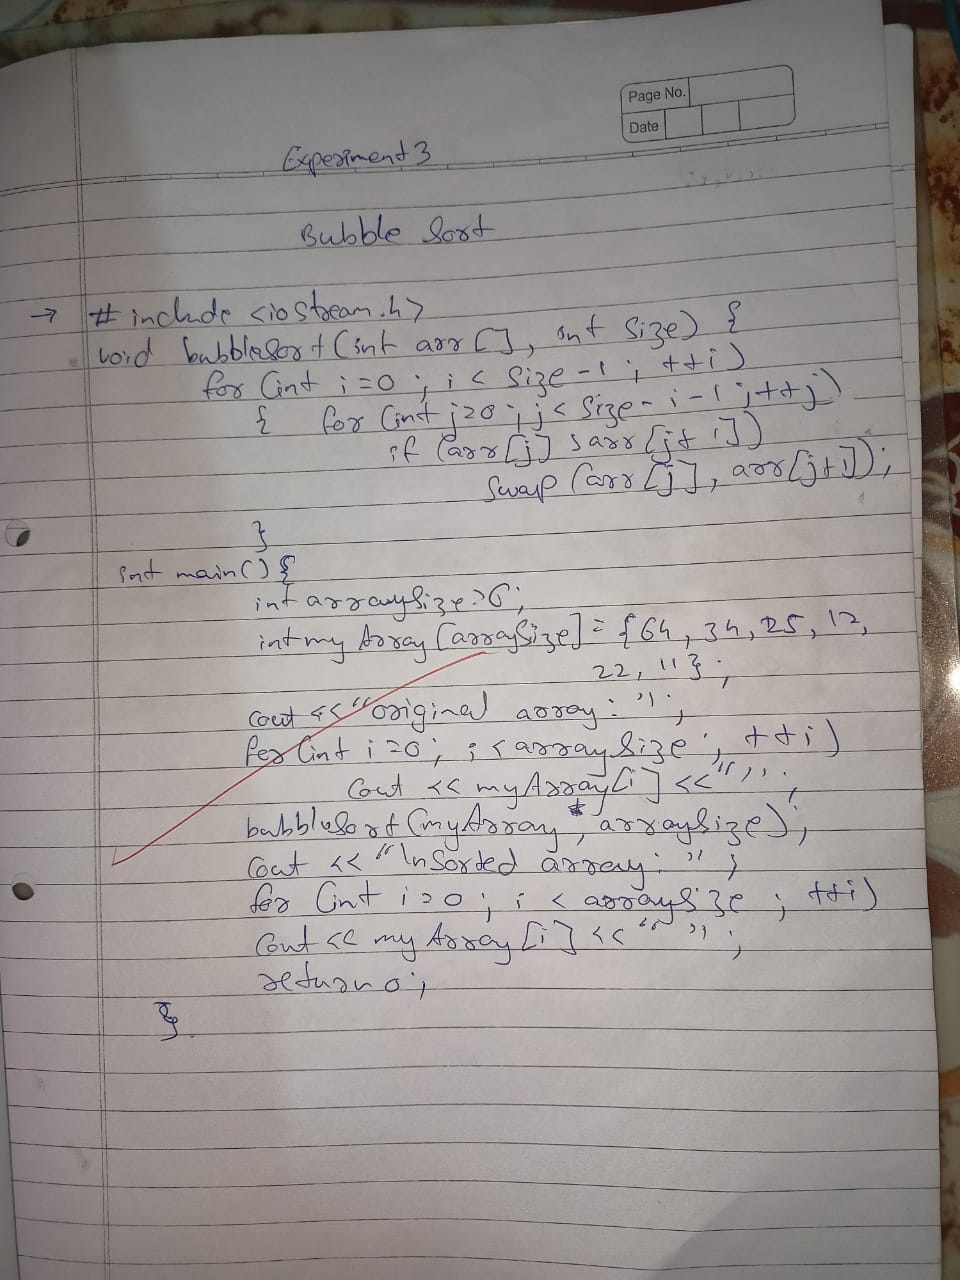 Page No.
Date
Experiment 3
Bubble Sort
→ # include <iostream.h>
void bubblesort (int arr [], int size) {
for (int i=0 ; i < size -1 ; ++i)
{ for (int j=0 ; j < size - i -1 ; ++j)
if (arr [j] > arr [j+1])
Swap (arr [j], arr [j+1]);
}
int main() {
int arraySize = 6;
int my Array [arraySize] = {64, 34, 25, 12,
22, 11} ;
cout << "original array: " ;
for (int i=0 ; i < arraySize ; ++i)
Cout << myArray[i] << " " ;
bubbleSort (myArray, arraySize);
Cout << "\nSorted array: " ;
for (int i=0 ; i < arraySize ; ++i)
Cout << my Array [i] << " " ;
return 0 ;
}